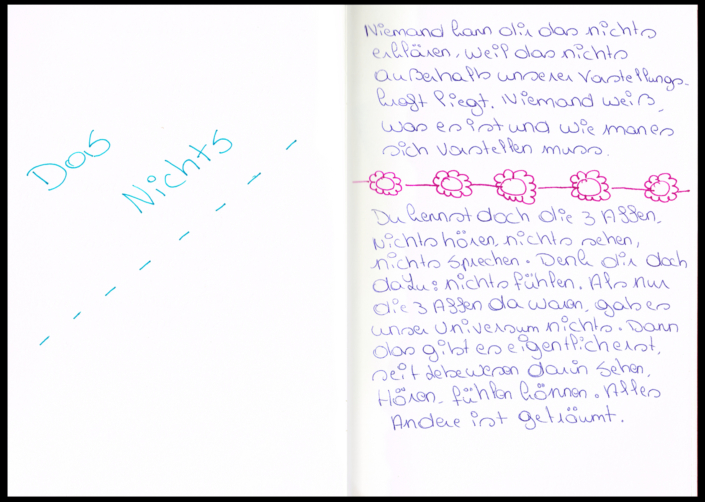 Das
Nichts
Niemand kann dir das nichts
erklären, weil das nichts
außerhalb unserer Vorstellungs-
kraft liegt. Niemand weiß,
was es ist und wie man es
sich vorstellen muss.
Du kennst doch die 3 Affen,
nichts hören, nichts sehen,
nichts sprechen. Denk dir doch
dazu: nichts fühlen. Als nur
die 3 Affen da waren, gab es
unser Universum nichts. Dann
das gibt es eigentlich erst,
seit Lebewesen darin sehen,
Hören, fühlen können. Alles
Andere ist geträumt.